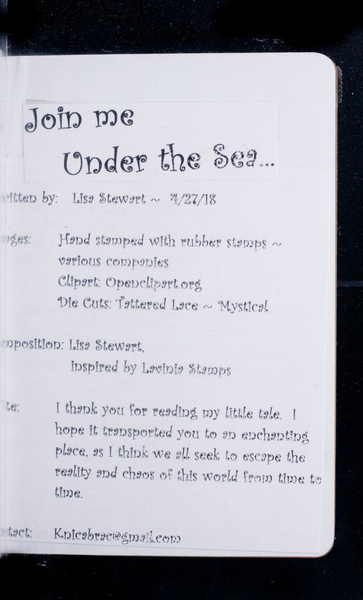 Join me
Under the Sea...
written by: Lisa Stewart ~ 4/27/18
ages: Hand stamped with rubber stamps ~
various companies
Clipart: Openclipart.org
Die Cuts: Tattered Lace ~ Mystical
mposition: Lisa Stewart,
Inspired by Lavinia Stamps
te: I thank you for reading my little tale. I
hope it transported you to an enchanting
place, as I think we all seek to escape the
reality and chaos of this world from time to
time.
tact: Knicabrac@gmail.com